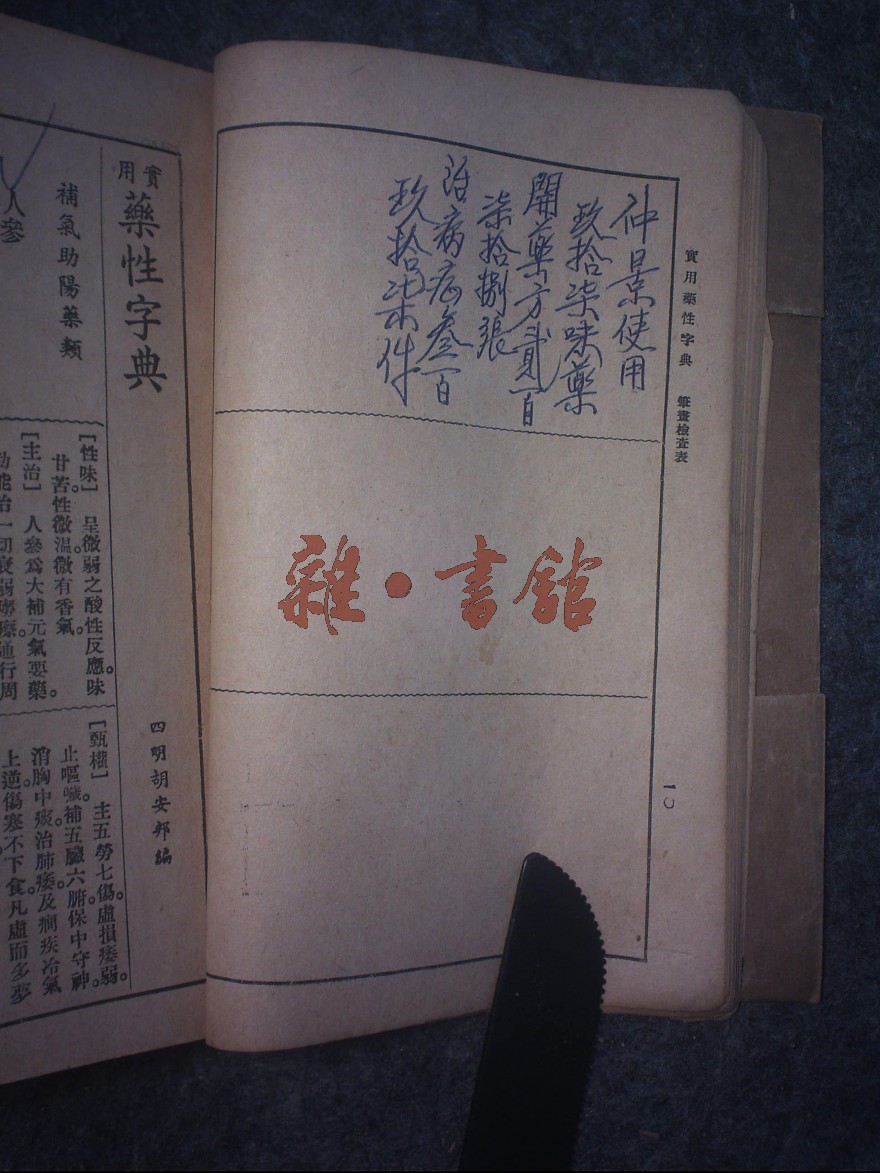 實用藥性字典 筆畫檢查表
一〇
仲景使用
玖拾柒味藥
開藥方貳百
柒拾捌張
治病症叁百
玖拾柒件
雜·書館
實用
藥性字典
四明胡安邦編
補氣助陽藥類
人參
[性味] 呈微弱之酸性反應。味
甘苦。性微溫。微有香氣。
[主治] 人參為大補元氣要藥。
功能治一切衰弱
通行周
[甄權] 主五勞七傷。虛損痿弱。
止嘔噦。補五臟六腑。保中守神。
消胸中痰。治肺痿及癇疾。冷氣
上逆。傷寒不下食。凡虛而多夢